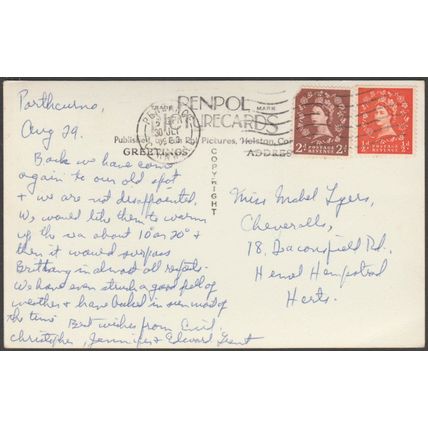 Porthcurno,
Aug 29.
Back we have come
again to our old spot
& we are not disappointed.
We would like them to warm
up the sea about 10° or 20° &
then it would surpass
Brittany in almost all respects.
We have even struck a good spell of
weather & have baked in sun most of
the time. Best wishes from
Christopher, Jennifer & Edward
TRADE MARK
PENPOL
PURECARDS
Published by Pictures, Helston, Cor
GREETINGS
ADDRESS
COPYRIGHT
2d POSTAGE REVENUE 2d
½d POSTAGE REVENUE ½d
Miss Mabel
Cheveralls,
78, Beaconsfield Rd.
Hemel Hempstead
Herts.